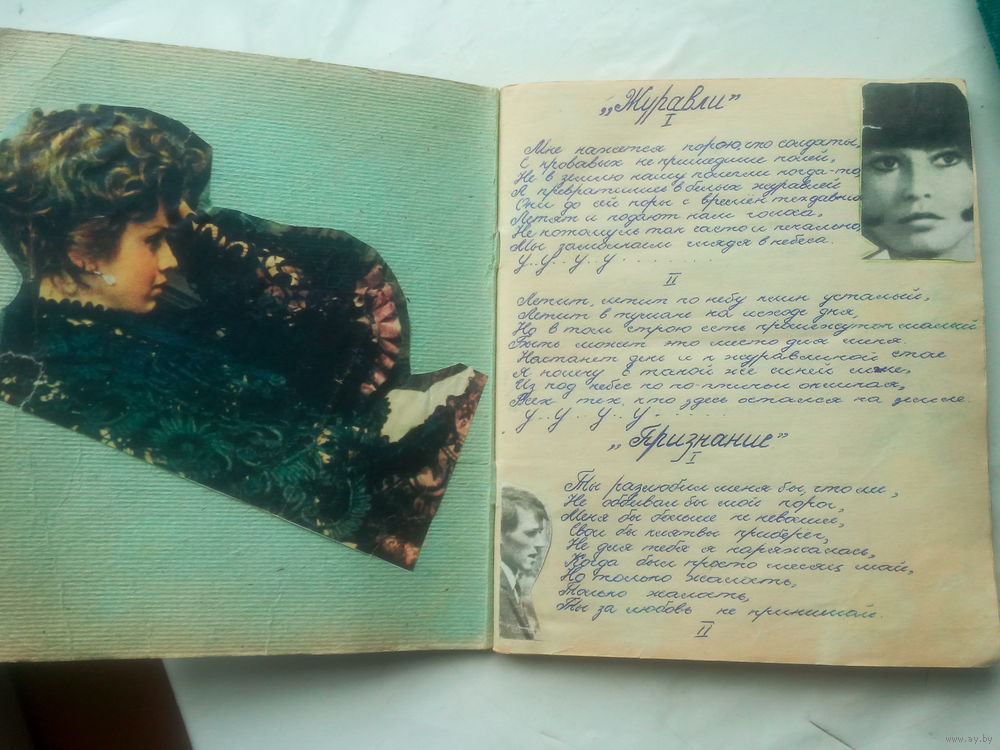 „Журавли”
I
Мне кажется порою, что солдаты,
С кровавых не пришедшие полей,
Не в землю нашу полегли когда-то,
А превратились в белых журавлей
Они до сей поры с времен тех давних
Летят и подают нам голоса,
Не потому ль так часто и печально,
Мы замолкаем глядя в небеса.
У..у..у..у.........
II
Летит, летит по небу клин усталый,
Летит в тумане на исходе дня,
Но в том строю есть промежуток малый
Быть может это место для меня.
Настанет день и с журавлиной стае
Я поплыву в такой же синей мгле,
Из под небес по по-птичьи окликая,
Всех тех, кто здесь остался на земле.
У..у..у..у.......
„Признание”
I
Ты разлюбил меня бы, что ли,
Не оббивал бы мой порог,
Меня бы больше не неволил,
Свои бы клятвы приберег,
Не для тебя я наряжалась,
Когда был просто месяц май,
Но только жалость,
Только жалость,
Ты за любовь не принимай.
II
www.ay.by